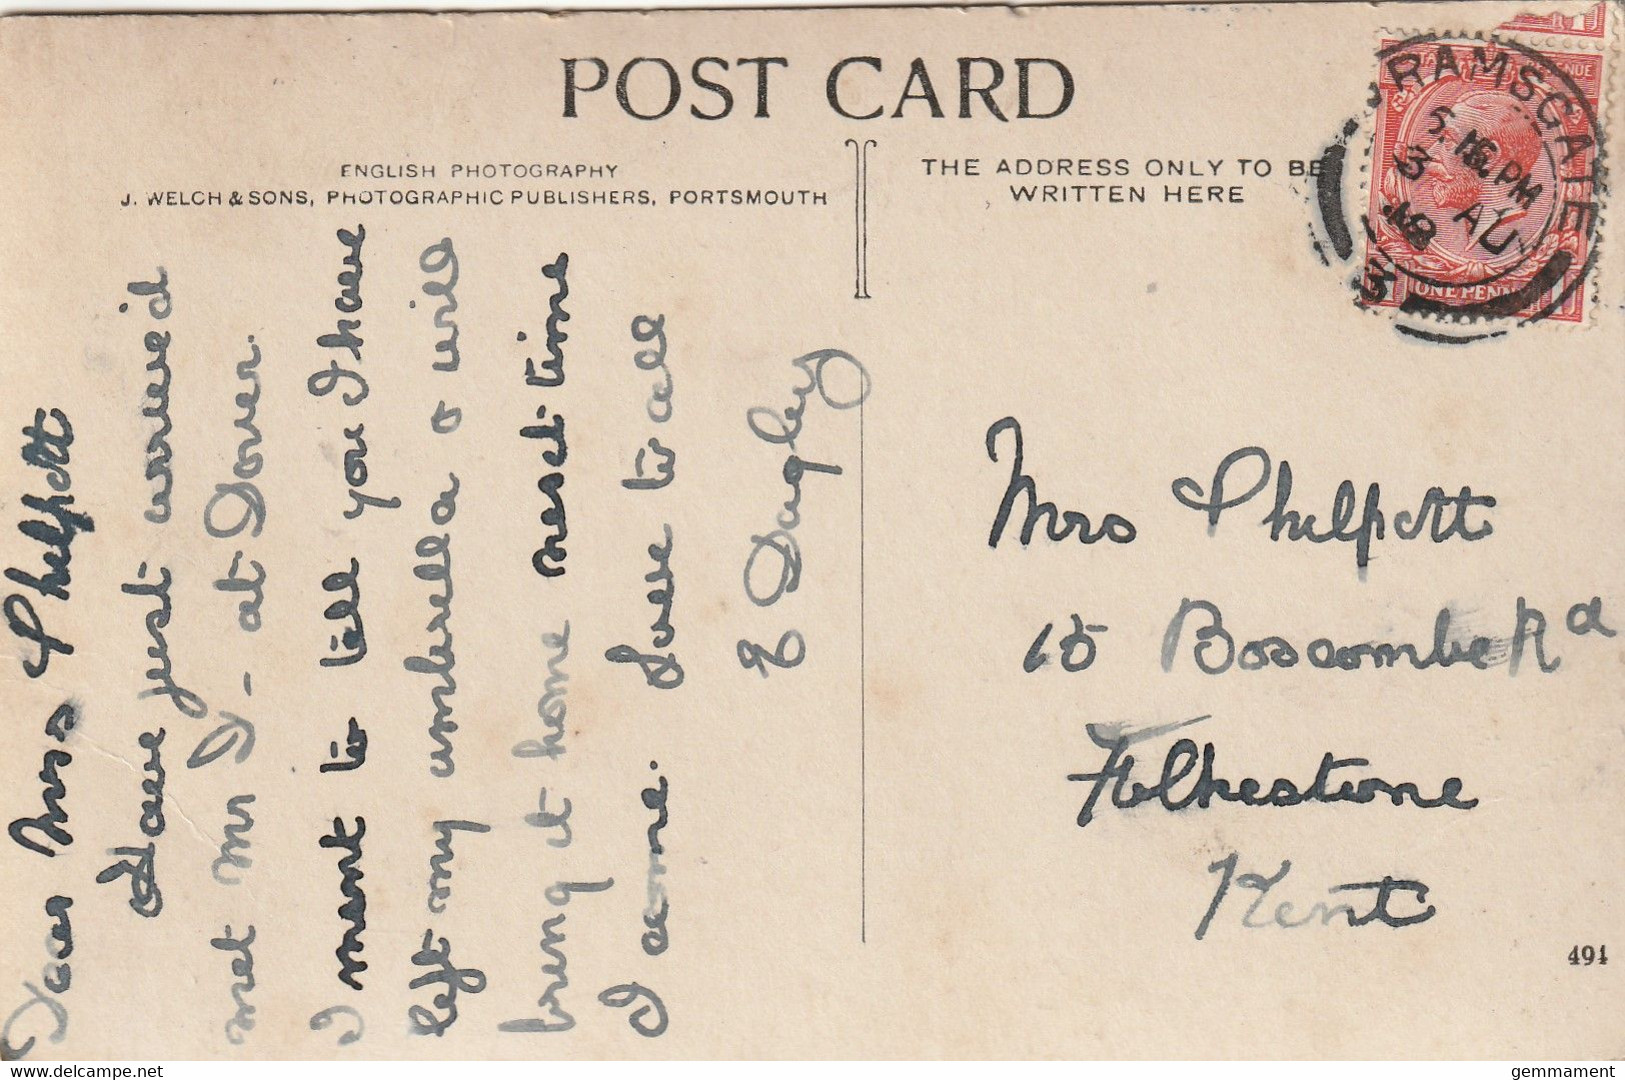 POST CARD
ENGLISH PHOTOGRAPHY
J. WELCH & SONS, PHOTOGRAPHIC PUBLISHERS, PORTSMOUTH
THE ADDRESS ONLY TO BE
WRITTEN HERE
RAMSGATE
5. 15 PM
3 AU
18
3
ONE PENNY
Dear Mrs Phelpott
Have just arrived
met Mr P - at Dover.
I meant to tell you I have
left my umbrella & will
bring it home next time
I come. Love to all
E Dagley
Mrs Phelpott
15 Boscombe Rd
Folkestone
Kent
491
delcampe.net
gemmament